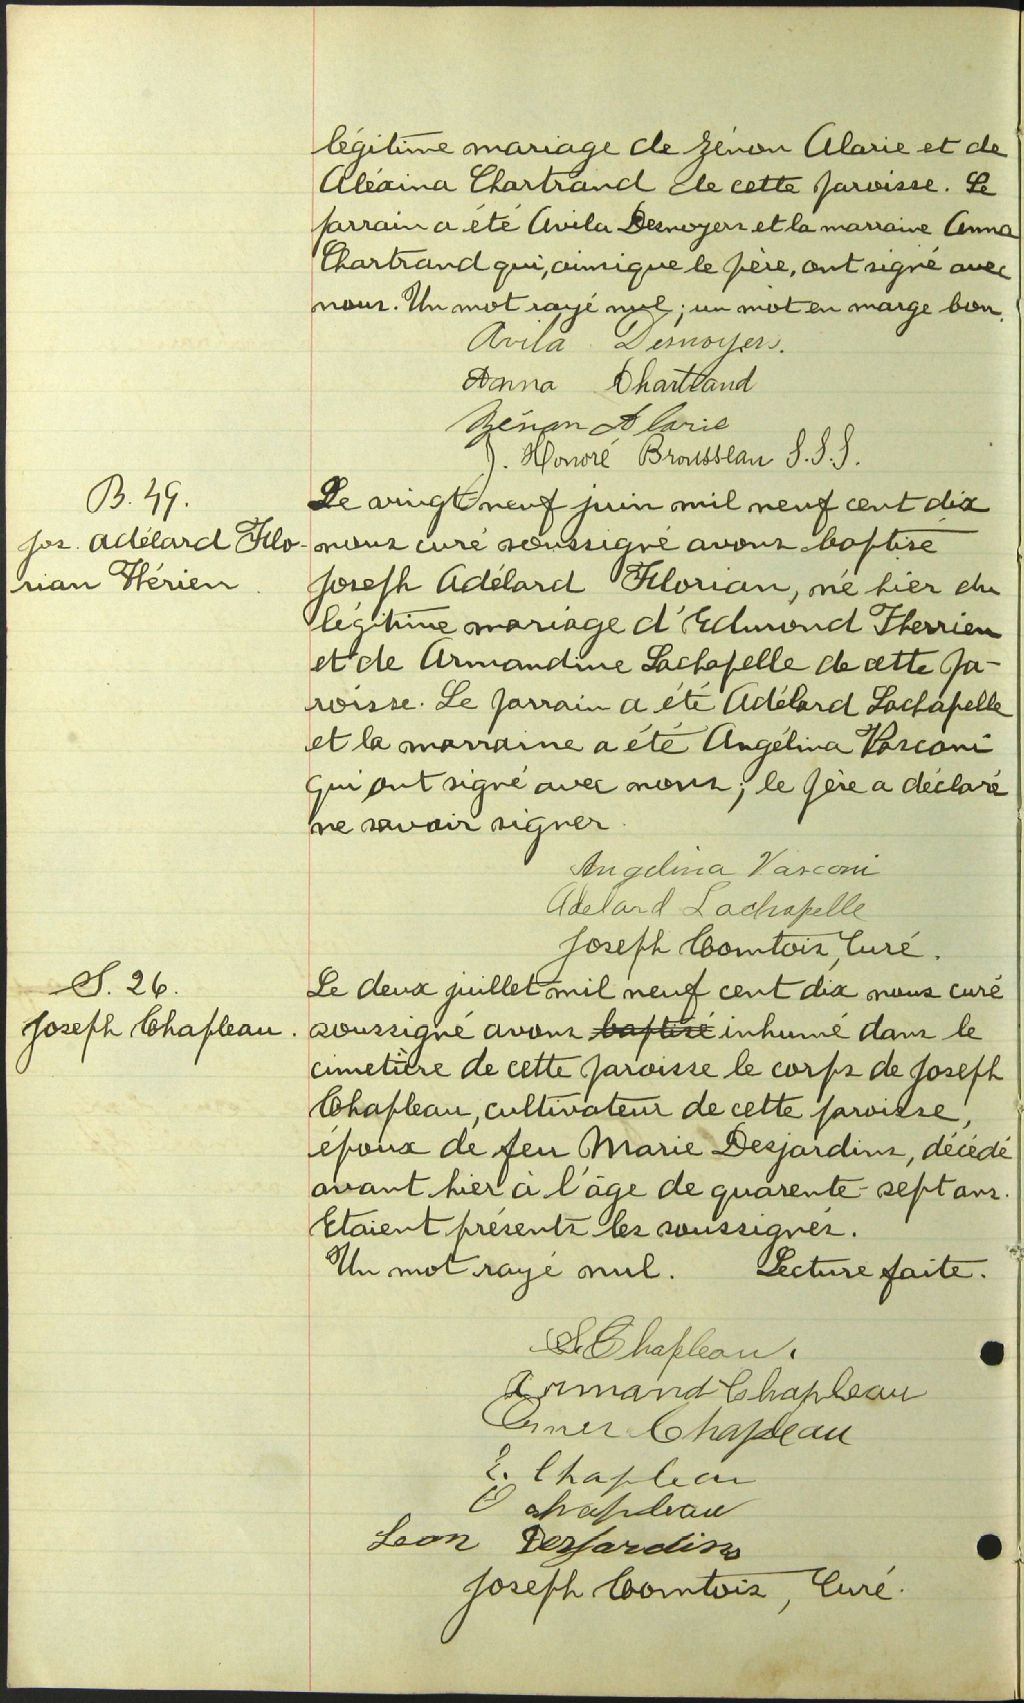 légitime mariage de Zénon Alarie et de
Aléxina Chartrand de cette paroisse. Le
parrain a été Avila Desnoyers et la marraine Anna
Chartrand qui, ainsi que le père, ont signé avec
nous. Un mot rayé nul ; un mot en marge bon.
Avila Desnoyers.
Anna Chartrand
Zénon Alarie
J. Honoré Brousseau S.S.S.
B. 49.
Jos. Adélard Flo-
rian Thérien
Le vingt neuf juin mil neuf cent dix
nous curé soussigné avons baptisé
Joseph Adélard Florian, né hier du
légitime mariage d'Edmond Therrien
et de Armandine Lachapelle de cette pa-
roisse. Le parrain a été Adélard Lachapelle
et la marraine a été Angélina Vasconi
qui ont signé avec nous ; le père a déclaré
ne savoir signer.
Angelina Vasconi
Adelard Lachapelle
Joseph Comtois, Curé.
S. 26.
Joseph Chapleau.
Le deux juillet mil neuf cent dix nous curé
soussigné avons baptisé inhumé dans le
cimetière de cette paroisse le corps de Joseph
Chapleau, cultivateur de cette paroisse,
époux de feu Marie Desjardins, décédé
avant hier à l'âge de quarente-sept ans.
Etaient présents les soussignés.
Un mot rayé nul. Lecture faite.
S. Chapleau.
Armand Chapleau
Omer Chapleau
E. Chapleau
O Chapleau
Leon Desjardins
Joseph Comtois, Curé.